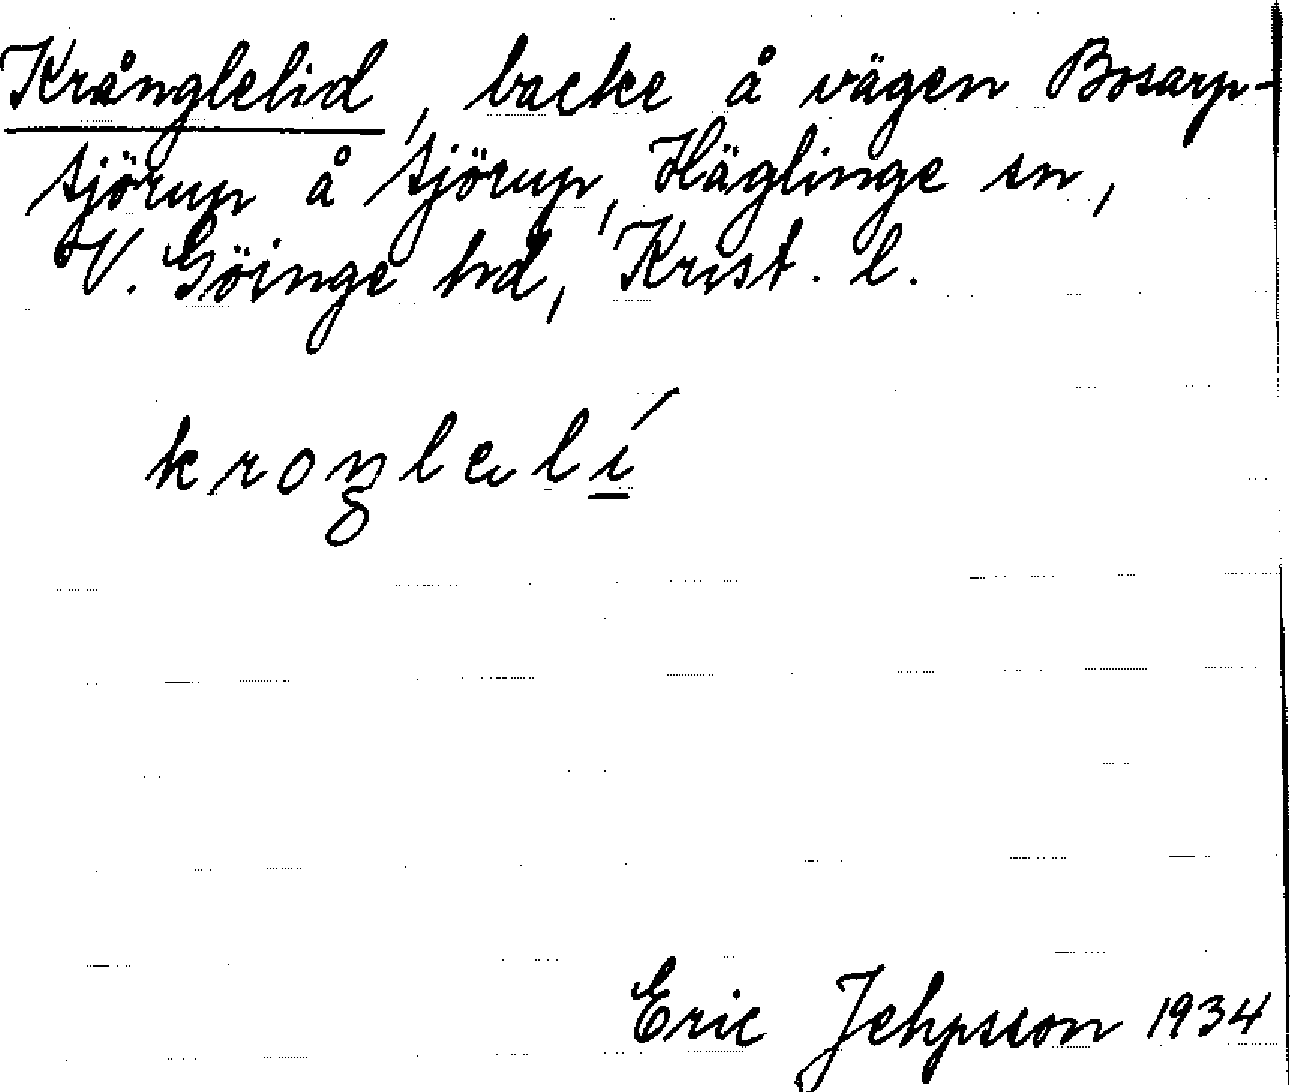 Krånglelid, backe å vägen Bosarp-
Sjörup å Sjörup, Häglinge sn,
V. Göinge hd, Krist. l.
kroŋlelí
Eric Jehpsson 1934